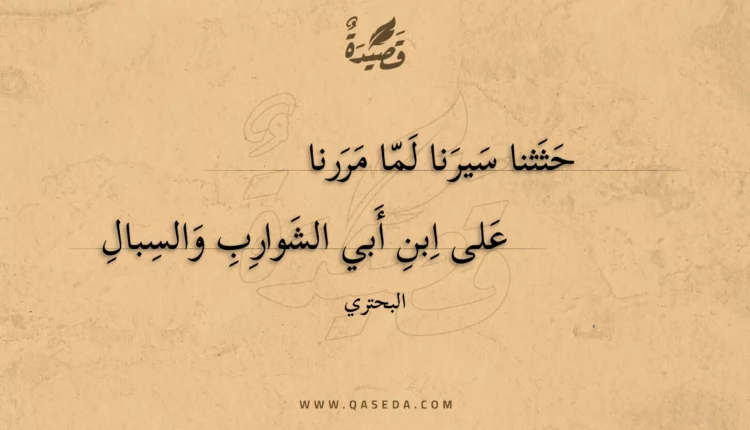 قَصِيدَةٌ
حَثَثنا سَيرَنا لَمّا مَرَرنا
عَلى اِبنِ أَبي الشَوارِبِ وَالسِبالِ
البحتري
WWW.QASEDA.COM